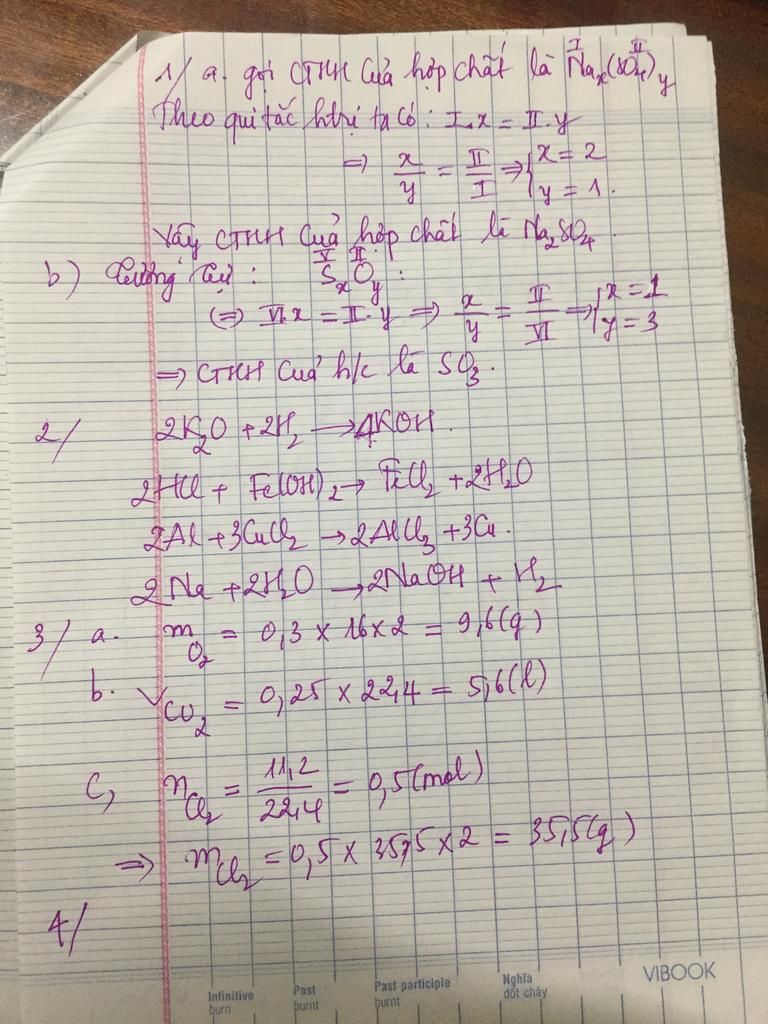 1/ a. gọi CTHH của hợp chất là Na_x^I(SO_4)_y^II
Theo qui tắc htrị ta có: I.x = II.y
=> x/y = II/I => { x = 2 y = 1.
Vậy CTHH của hợp chất là Na₂SO₄.
b) Tương tự: S_x^V O_y^II :
(=) VI.x = II.y => x/y = II/VI => { x = 1 y = 3
=> CTHH của h/c là SO₃.
2/ 2K₂O + 2H₂ → 4KOH.
2HCl + Fe(OH)₂ → FeCl₂ + 2H₂O
2Al + 3CuCl₂ → 2AlCl₃ + 3Cu.
2Na + 2H₂O → 2NaOH + H₂
3/ a. m_O₂ = 0,3 × 16 × 2 = 9,6 (g)
b. V_CO₂ = 0,25 × 22,4 = 5,6 (l)
c, n_Cl₂ = 11,2/22,4 = 0,5 (mol)
=> m_Cl₂ = 0,5 × 35,5 × 2 = 35,5 (g)
4/
Infinitive Past Past participle Nghĩa
burn burnt burnt đốt cháy
VIBOOK